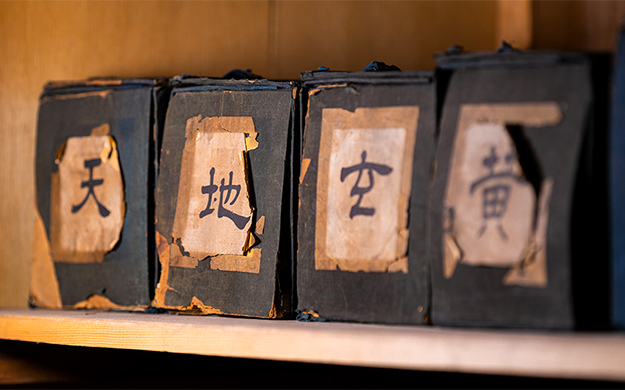 天 地 玄 黄